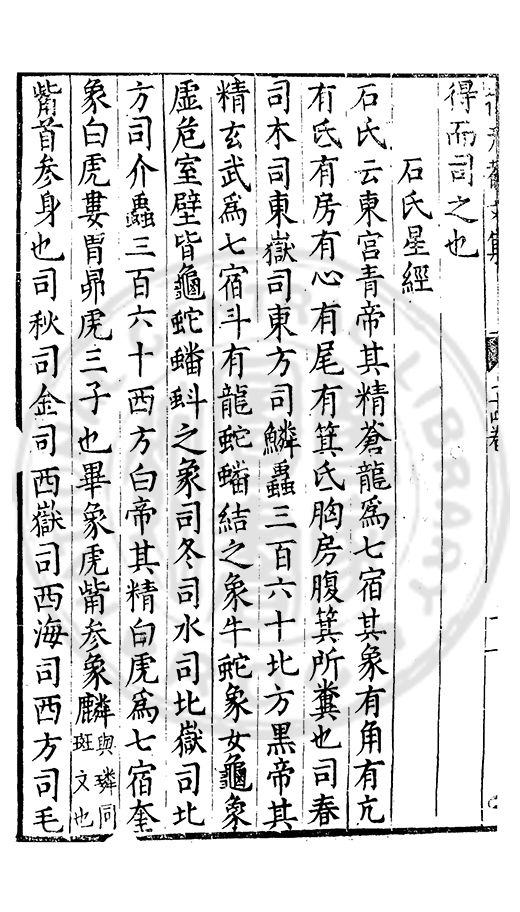 得而司之也
石氏星經
石氏云東宮青帝其精蒼龍爲七宿其象有角有亢
有氐有房有心有尾有箕氐胸房腹箕所糞也司春
司木司東嶽司東方司鱗蟲三百六十北方黑帝其
精玄武爲七宿斗有龍蛇蟠結之象牛蛇象女龜象
虛危室壁皆龜蛇蟠蚪之象司冬司水司北嶽司北
方司介蟲三百六十西方白帝其精白虎爲七宿奎
象白虎婁胃昴虎三子也畢象虎觜参象麟與璘同
斑文也
觜首参身也司秋司金司西嶽司西海司西方司毛